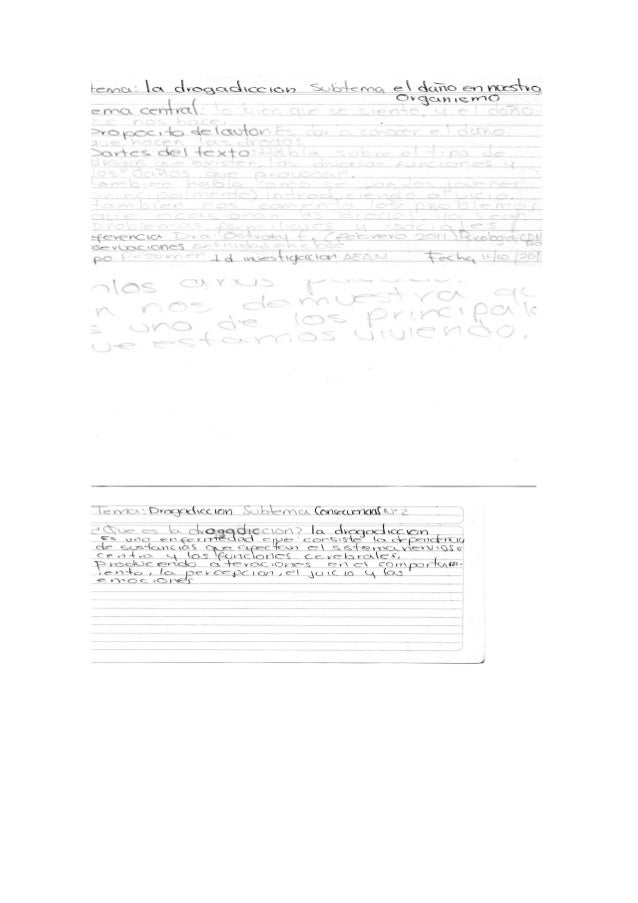 tema: la drogadiccion Subtema el daño en nuestro
Organismo
ema central: lo bien que se siente, y el daño
que nos hace.
Propocito del autor: Es dar a conocer el daño
que hacen las drogas
Partes del texto: Habla sobre el tipo de
drogas que existen, las diversas funciones y
los daños que provocan.
tambien habla como se van los jovenes
principalmente introduciendo al vicio.
tambien nos comenta los problemas
que ocacionan las drogas ya sean
problemas familiares y sociales
eferencia Dra. Ostrosky f, (febrero 2011) Psicologa
servaciones actividad en clase
po Resumen Id investigacion AEAN Fecha 11/10/201
nlos
n nos demuestra
s uno de los principale
ue estamos viviendo.
Tema: Drogadiccion Subtema Consecuencias Nº 2
¿Que es la drogadiccion? la drogadiccion
es una enfermedad que consiste la dependencia
de sustancias que afectan el sistema nervioso
centro y las funciones cerebrales,
produciendo alteraciones en el comportam-
iento, la percepcion, el juicio y las
emociones